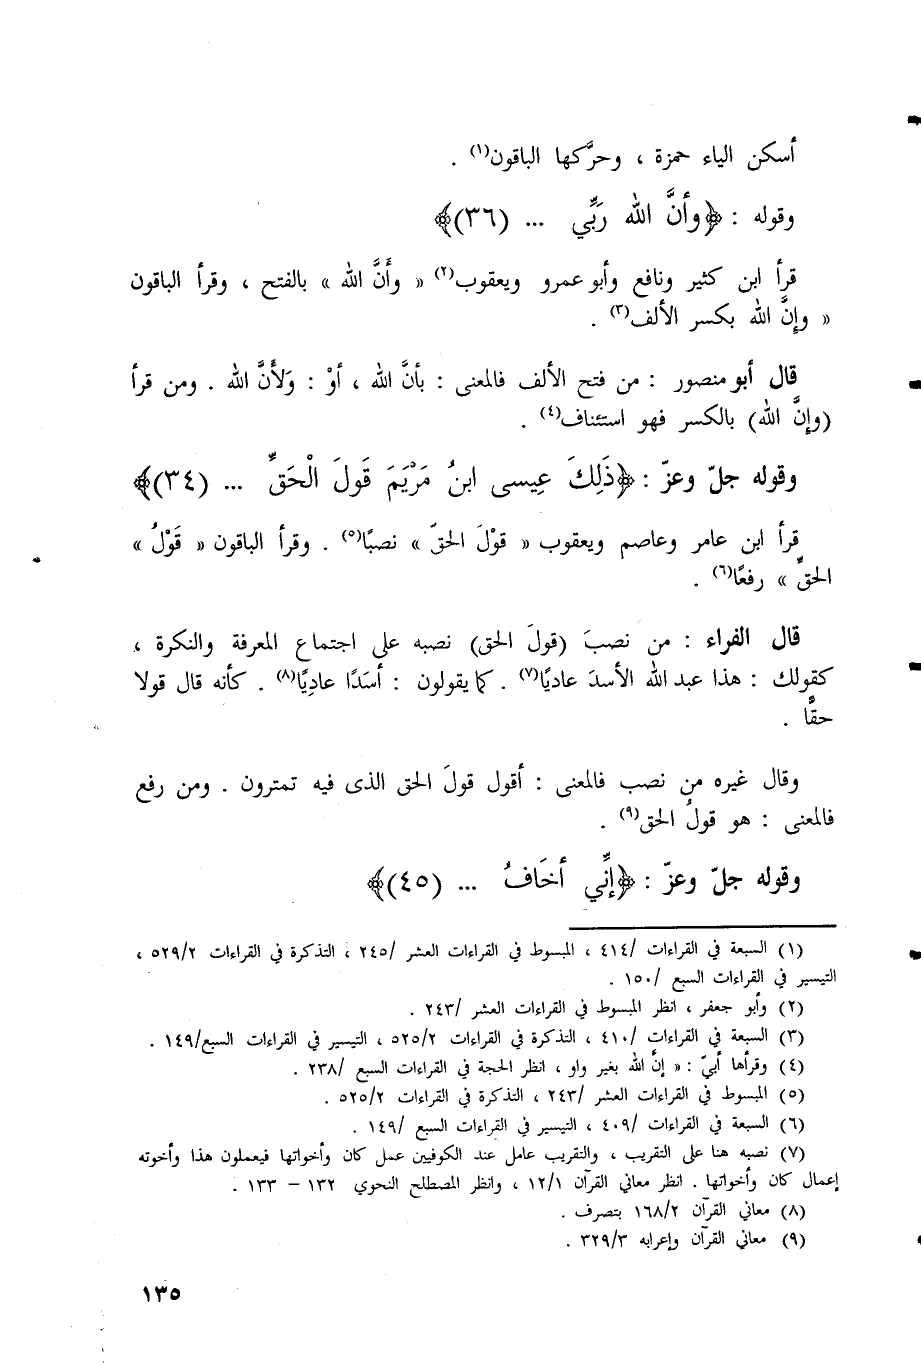 أسكن الياء حمزة ، وحرَّكها الباقون(١) .
وقوله : ﴿وأنَّ الله رَبِّي ... (٣٦)﴾
قرأ ابن كثير ونافع وأبو عمرو ويعقوب(٢) « وأَنَّ الله » بالفتح ، وقرأ الباقون
« وإِنَّ الله بكسر الألف(٣) .
قال أبو منصور : من فتح الألف فالمعنى : بأنَّ الله ، أوْ : وَلأَنَّ الله . ومن قرأ
(وإِنَّ الله) بالكسر فهو استئناف(٤) .
وقوله جلّ وعزّ : ﴿ذَلِكَ عِيسى ابنُ مَرْيَمَ قَولَ الْحَقِّ ... (٣٤)﴾
قرأ ابن عامر وعاصم ويعقوب « قوْلَ الحقّ » نصبًا(٥) . وقرأ الباقون « قَوْلُ »
الحقِّ » رفعًا(٦) .
قال الفراء : من نصبَ (قولَ الحق) نصبه على اجتماع المعرفة والنكرة ،
كقولك : هذا عبد الله الأسدَ عاديًا(٧) . كما يقولون : أسَدًا عادِيًا(٨) . كأنه قال قولا
حقًّا .
وقال غيره من نصب فالمعنى : أقول قولَ الحق الذى فيه تمترون . ومن رفع
فالمعنى : هو قولُ الحق(٩) .
وقوله جلّ وعزّ : ﴿إنِّي أخَافُ ... (٤٥)﴾
(١) السبعة في القراءات /٤١٤ ، المبسوط في القراءات العشر /٢٤٥ ، التذكرة في القراءات ٥٢٩/٢ ،
التيسير في القراءات السبع /١٥٠ .
(٢) وأبو جعفر ، انظر المبسوط في القراءات العشر /٢٤٣ .
(٣) السبعة في القراءات /٤١٠ ، التذكرة في القراءات ٥٢٥/٢ ، التيسير في القراءات السبع/١٤٩ .
(٤) وقرأها أبيّ : « إنَّ الله بغير واو ، انظر الحجة في القراءات السبع /٢٣٨ .
(٥) المبسوط في القراءات العشر /٢٤٣ ، التذكرة في القراءات ٥٢٥/٢ .
(٦) السبعة في القراءات /٤٠٩ ، التيسير في القراءات السبع /١٤٩ .
(٧) نصبه هنا على التقريب ، والتقريب عامل عند الكوفيين عمل كان وأخواتها فيعملون هذا وأخوته
إعمال كان وأخواتها . انظر معاني القرآن ١٢/١ ، وانظر المصطلح النحوي ١٣٢ – ١٣٣ .
(٨) معاني القرآن ١٦٨/٢ بتصرف .
(٩) معاني القرآن وإعرابه ٣٢٩/٣ .
١٣٥